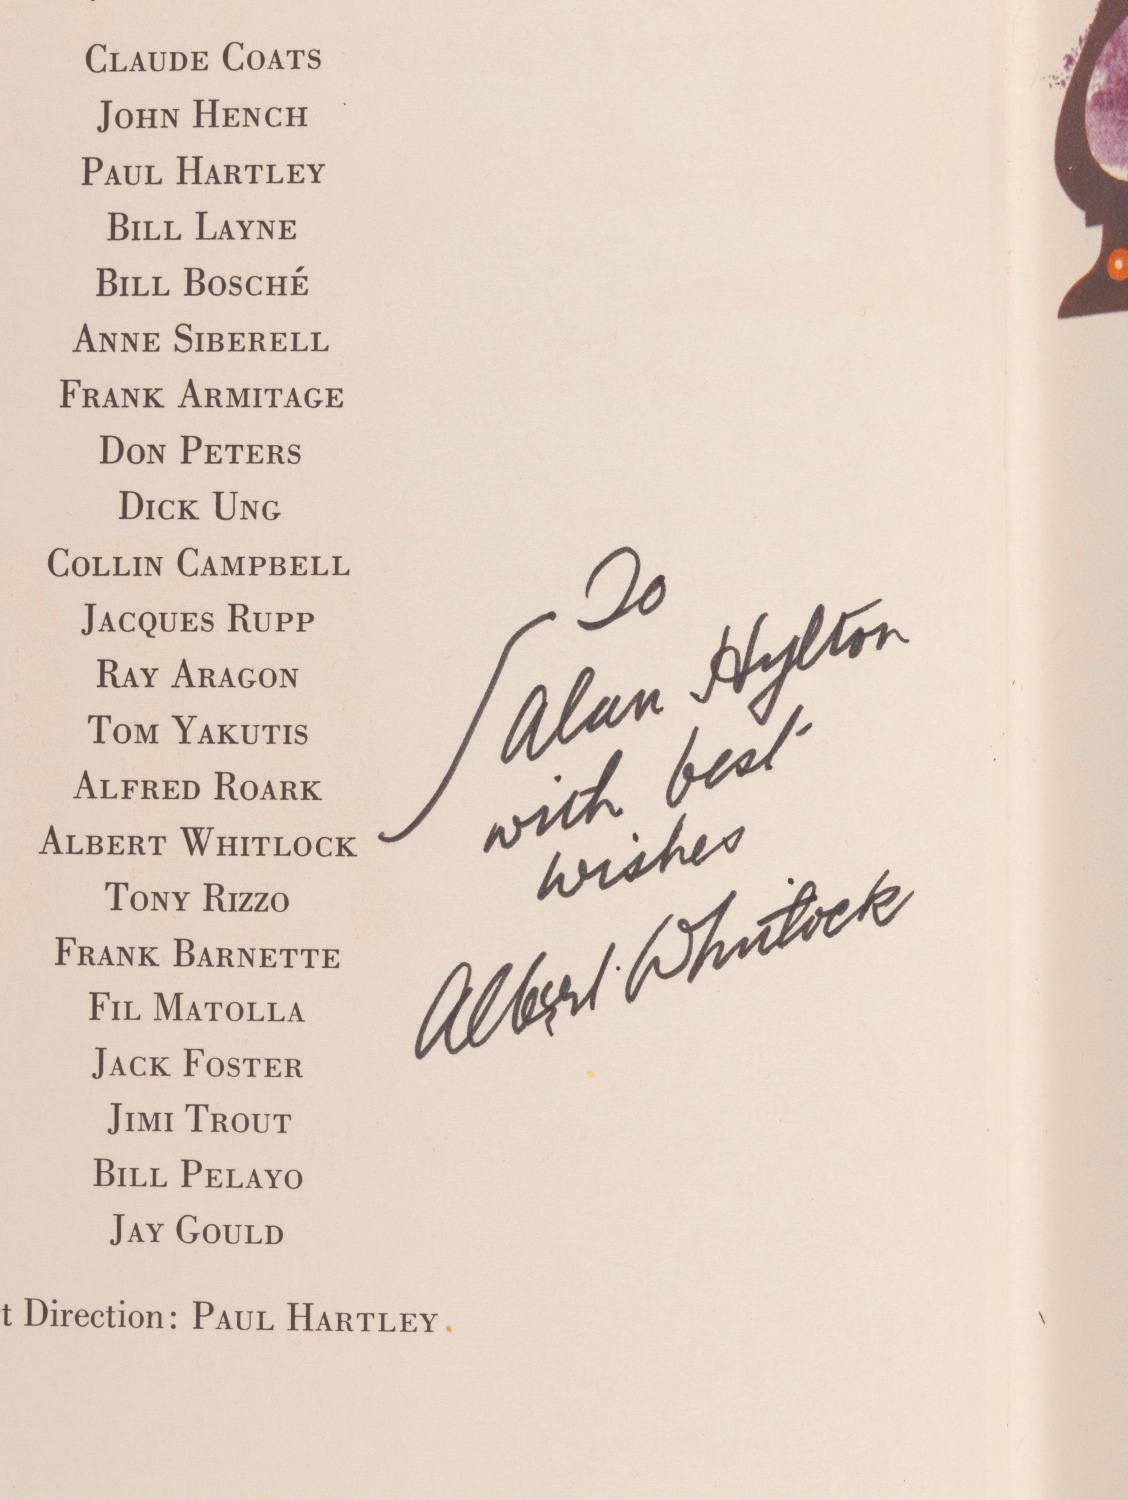 CLAUDE COATS
JOHN HENCH
PAUL HARTLEY
BILL LAYNE
BILL BOSCHÉ
ANNE SIBERELL
FRANK ARMITAGE
DON PETERS
DICK UNG
COLLIN CAMPBELL
JACQUES RUPP
RAY ARAGON
TOM YAKUTIS
ALFRED ROARK
ALBERT WHITLOCK
TONY RIZZO
FRANK BARNETTE
FIL MATOLLA
JACK FOSTER
JIMI TROUT
BILL PELAYO
JAY GOULD
t Direction: PAUL HARTLEY
To
Alan Hylton
with best
wishes
Albert Whitlock